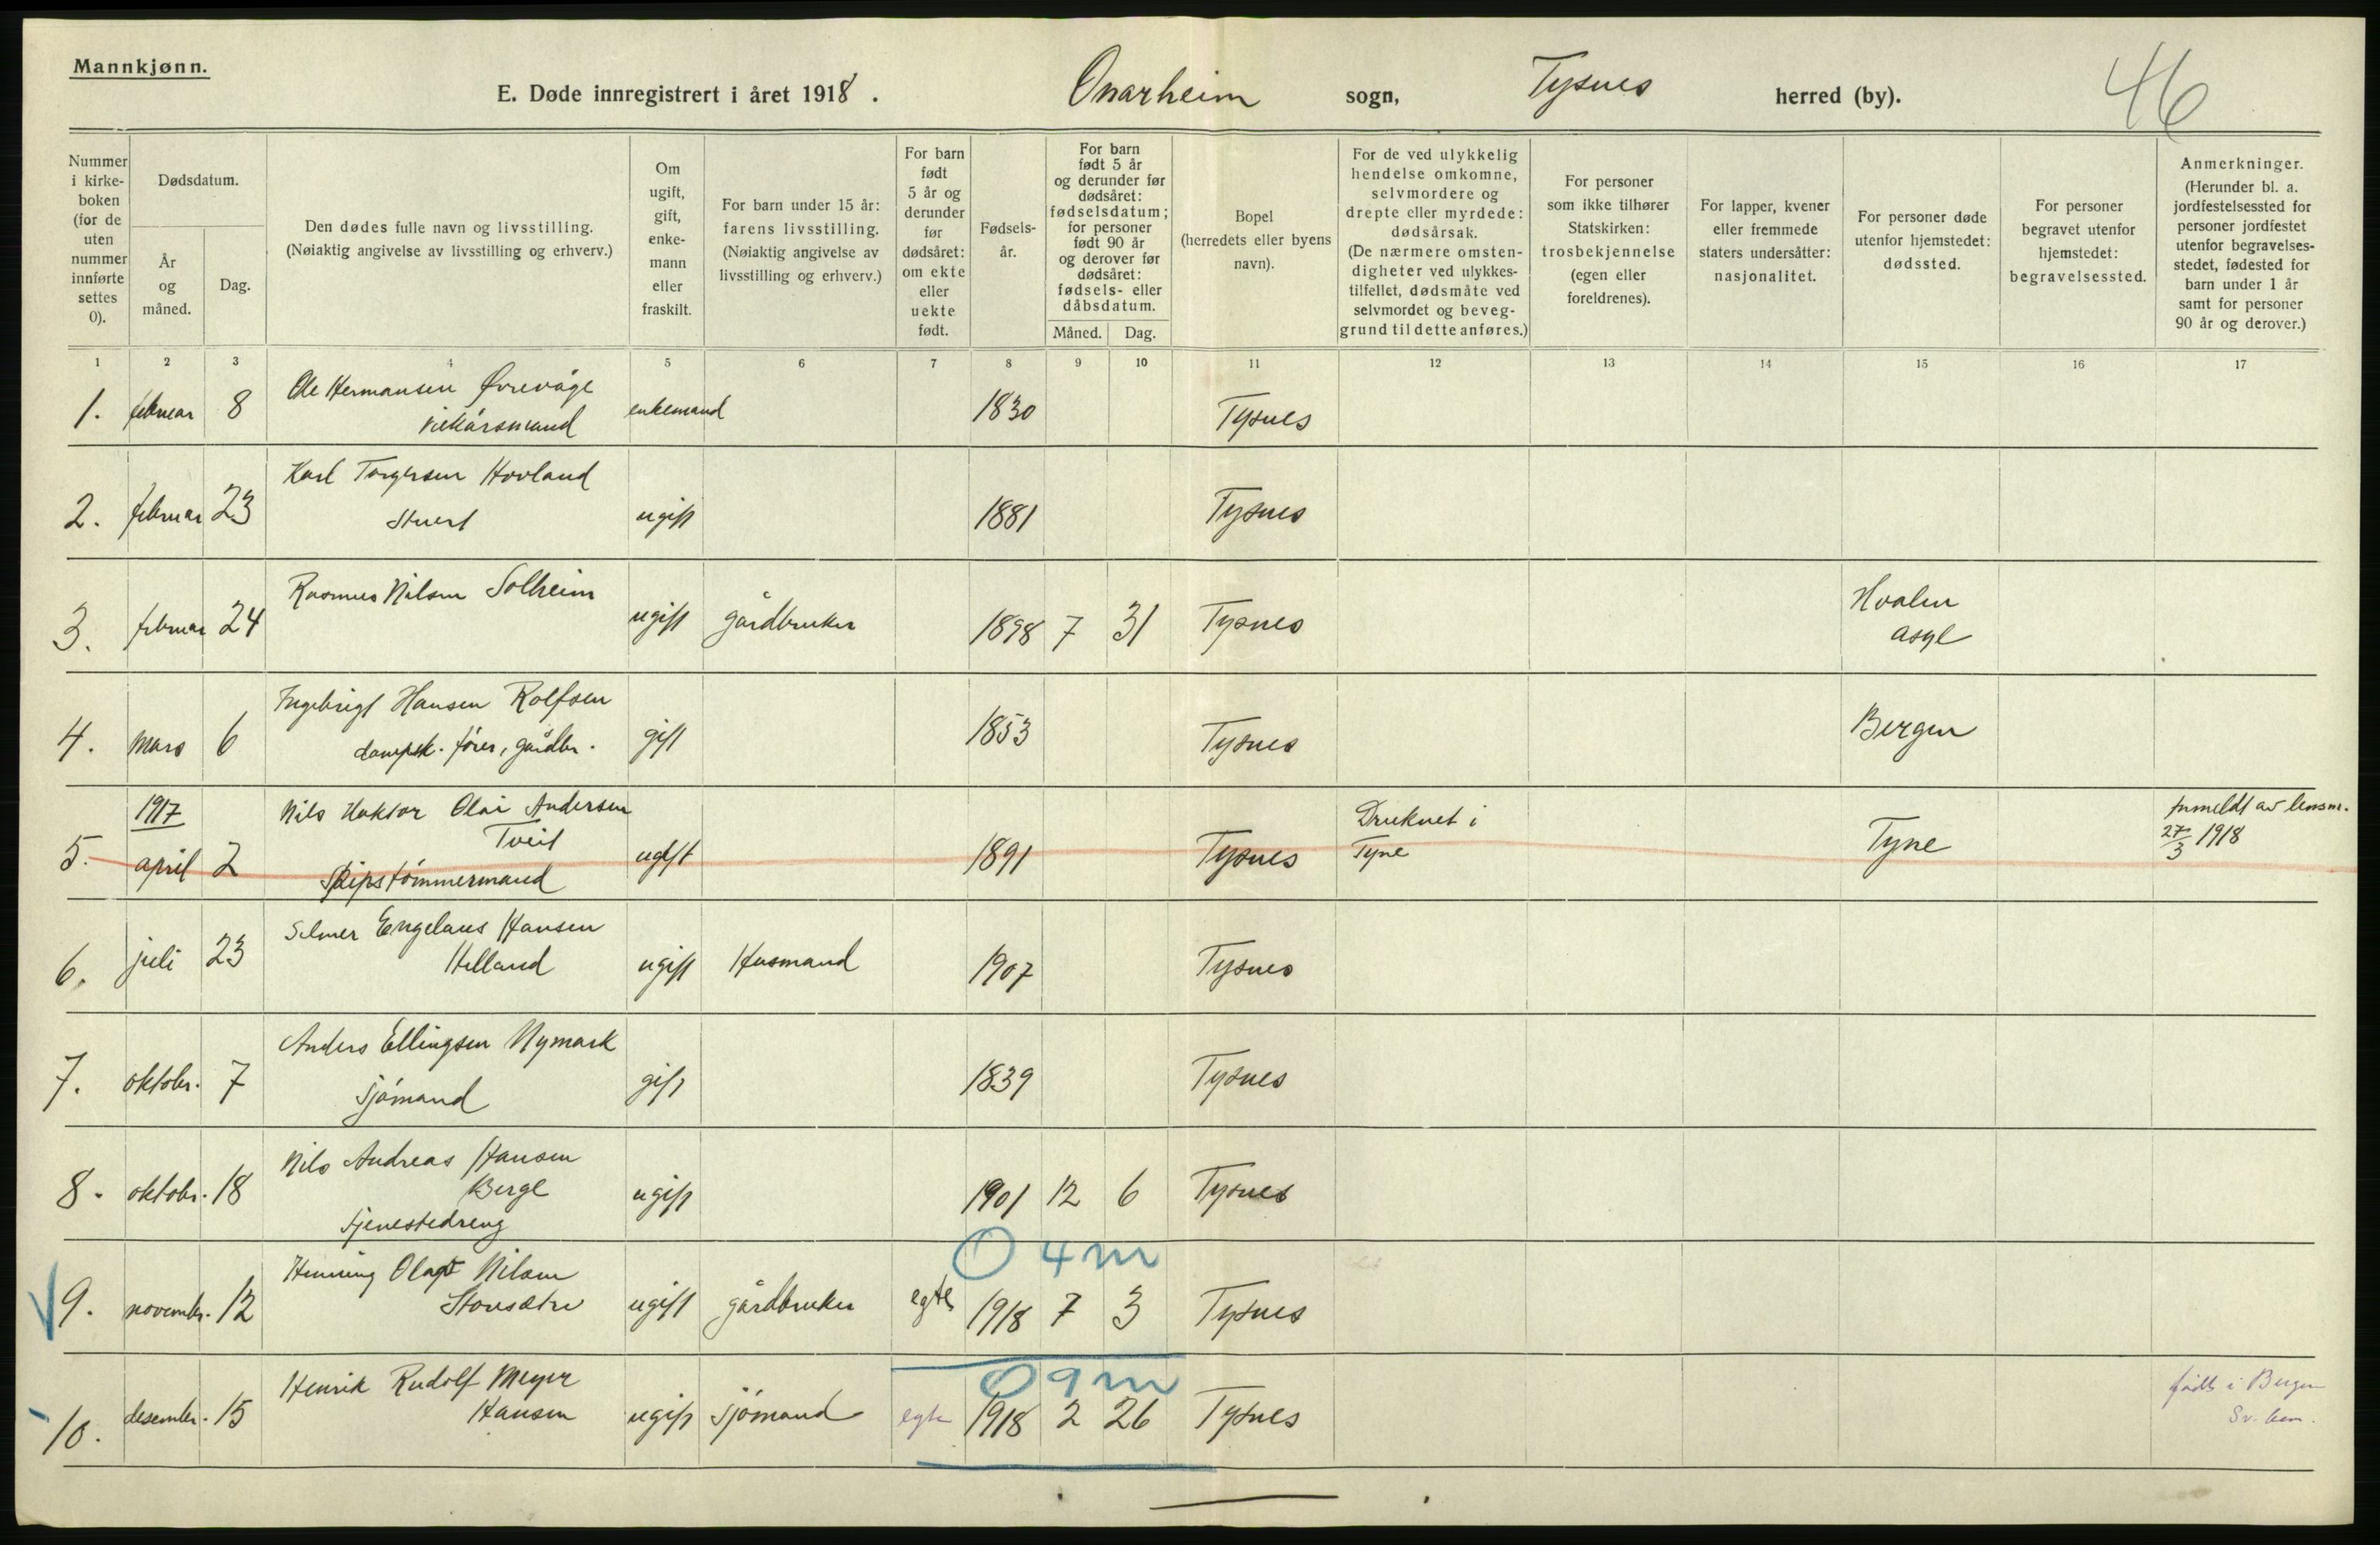 Mannkjønn.
E. Døde innregistrert i året 1918. Onarheim sogn, Tysnes herred (by). 46
Nummer i kirke-boken (for de uten nummer innførte settes 0).
Dødsdatum.
År og måned.
Dag.
Den dødes fulle navn og livsstilling.
(Nøiaktig angivelse av livsstilling og erhverv.)
Om ugift, gift, enke-mann eller fraskilt.
For barn under 15 år: farens livsstilling. (Nøiaktig angivelse av livsstilling og erhverv.)
For barn født 5 år og derunder før dødsåret: om ekte eller uekte født.
Fødsels-år.
For barn født 5 år og derunder før dødsåret: fødselsdatum; for personer født 90 år og derover før dødsåret: fødsels- eller dåbsdatum.
Måned. Dag.
Bopel (herredets eller byens navn).
For de ved ulykkelig hendelse omkomne, selvmordere og drepte eller myrdede: dødsårsak. (De nærmere omsten-digheter ved ulykkes-tilfellet, dødsmåte ved selvmordet og beveg-grund til dette anføres.)
For personer som ikke tilhører Statskirken: trosbekjennelse (egen eller foreldrenes).
For lapper, kvener eller fremmede staters undersåtter: nasjonalitet.
For personer døde utenfor hjemstedet: dødssted.
For personer begravet utenfor hjemstedet: begravelsessted.
Anmerkninger. (Herunder bl. a. jordfestelsessted for personer jordfestet utenfor begravelses-stedet, fødested for barn under 1 år samt for personer 90 år og derover.)
1 2 3 4 5 6 7 8 9 10 11 12 13 14 15 16 17
1. februar 8 Ole Hermansen Øvrevåge enkemand 1830 Tysnes
vilkårsmand
2. februar 23 Karl Torgersen Hovland ugift 1881 Tysnes
Stuert
3. februar 24 Rasmus Nilsen Solheim ugift gårdbruker 1898 7 31 Tysnes Hvalen
asyl
4. mars 6 Ingebrigt Hansen Rolfsen gift 1853 Tysnes Bergen
dampsk. fører, gårdbr.
1917
5. april 2 Nils Haktor Olai Andersen
Tveit ugift 1891 Tysnes Druknet i
Tyne Tyne Anmeldt av lensm.
27/3 1918
Skipstømmermand
6. juli 23 Selmer Engelaus Hansen
Helland ugift Husmand 1907 Tysnes
7. oktobr. 7 Anders Ellingsen Nymark gift 1839 Tysnes
Sjømand
8. oktobr. 18 Nils Andreas Hansen
Berge ugift 1901 12 6 Tysnes
Tjenestedreng
0 4 m
9. novembr. 12 Henning Olaf Nilsen
Storsætre ugift gårdbruker egte 1918 7 3 Tysnes
0 9 m
10. desembr. 15 Henrik Rudolf Meyer
Hansen ugift Sjømand egte 1918 2 26 Tysnes født i Bergen
Sv. hen.